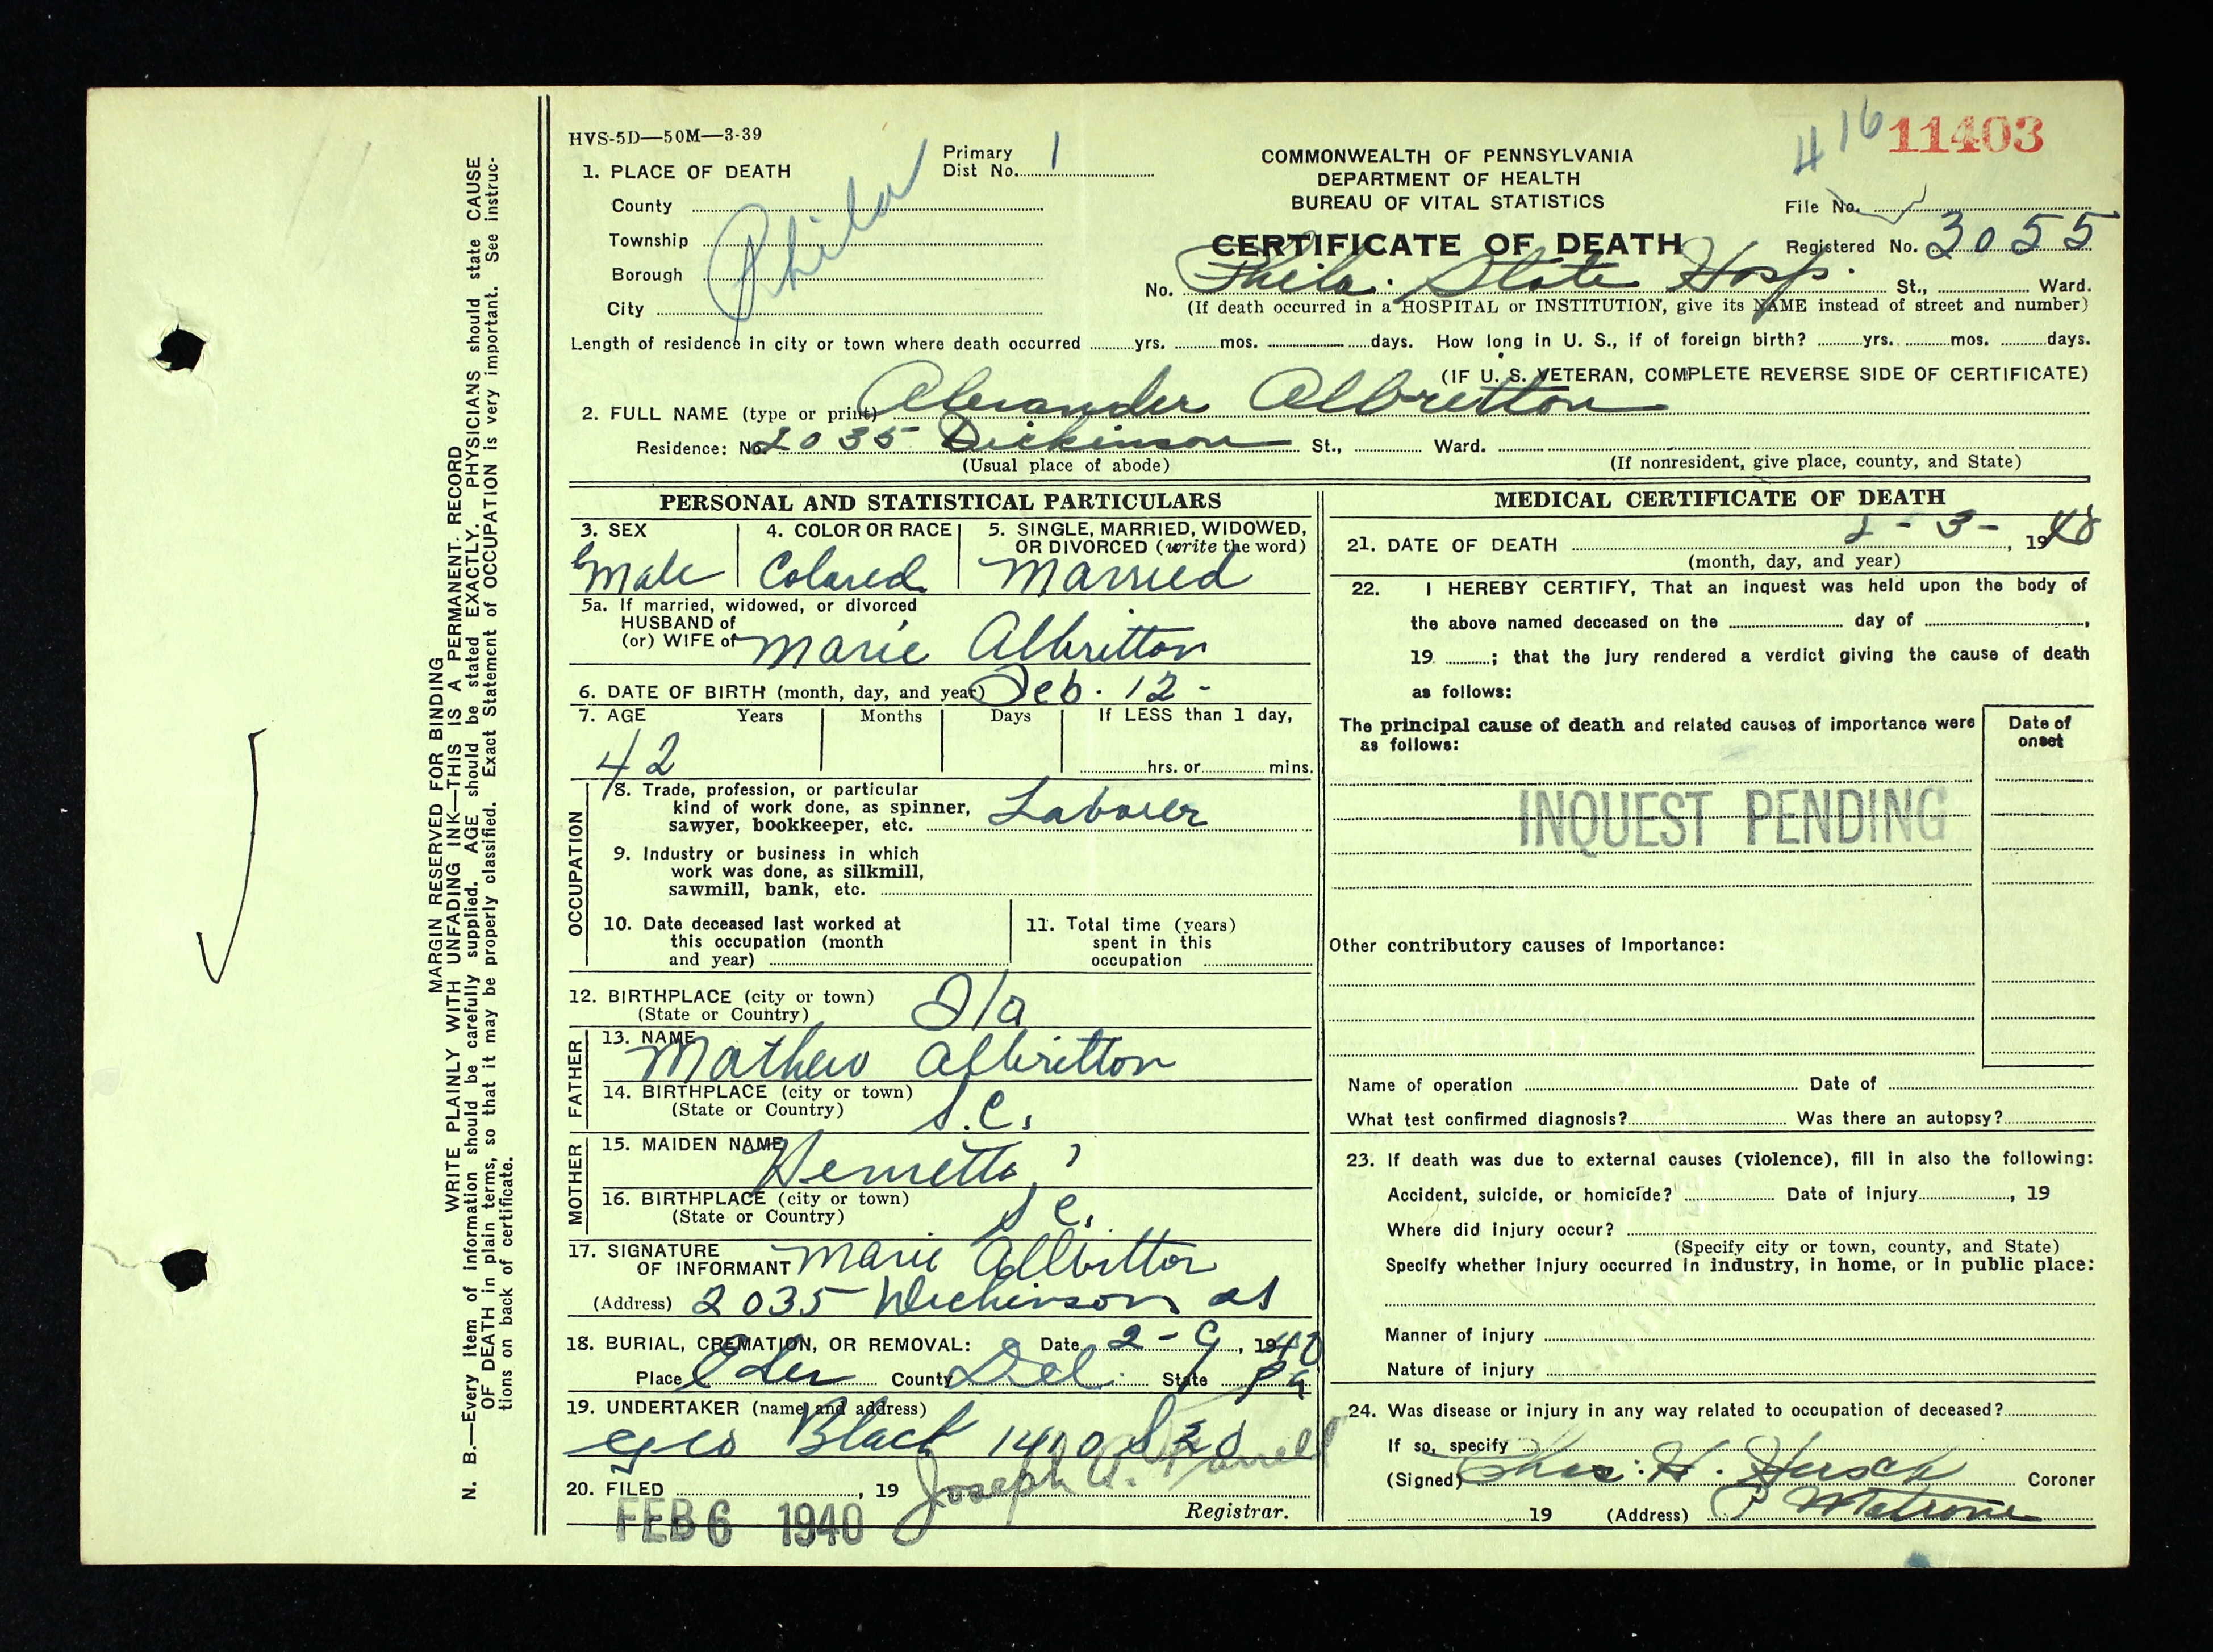 416 11403
HVS-5D—50M—3-39
COMMONWEALTH OF PENNSYLVANIA
DEPARTMENT OF HEALTH
BUREAU OF VITAL STATISTICS
CERTIFICATE OF DEATH
1. PLACE OF DEATH
Primary Dist No. 1
County
Township
Borough
City
Phila
File No.
Registered No. 3055
No. Phila. State Hosp. St., Ward.
(If death occurred in a HOSPITAL or INSTITUTION, give its NAME instead of street and number)
Length of residence in city or town where death occurred yrs. mos. days. How long in U. S., if of foreign birth? yrs. mos. days.
(IF U. S. VETERAN, COMPLETE REVERSE SIDE OF CERTIFICATE)
2. FULL NAME (type or print) Alexander Albretton
Residence: No. 2035 Dickinson St., Ward.
(Usual place of abode) (If nonresident, give place, county, and State)
PERSONAL AND STATISTICAL PARTICULARS
3. SEX
Male
4. COLOR OR RACE
Colored
5. SINGLE, MARRIED, WIDOWED,
OR DIVORCED (write the word)
Married
5a. If married, widowed, or divorced
HUSBAND of
(or) WIFE of Marie Albritton
6. DATE OF BIRTH (month, day, and year) Feb. 12 -
7. AGE Years Months Days If LESS than 1 day,
42 hrs. or mins.
OCCUPATION
8. Trade, profession, or particular
kind of work done, as spinner,
sawyer, bookkeeper, etc. Laborer
9. Industry or business in which
work was done, as silkmill,
sawmill, bank, etc.
10. Date deceased last worked at
this occupation (month
and year)
11. Total time (years)
spent in this
occupation
12. BIRTHPLACE (city or town)
(State or Country) Fla
FATHER
13. NAME Mathew Albritton
14. BIRTHPLACE (city or town)
(State or Country) S.C.
MOTHER
15. MAIDEN NAME Henretta ?
16. BIRTHPLACE (city or town)
(State or Country) S C.
17. SIGNATURE
OF INFORMANT Marie Albritton
(Address) 2035 Dickinson st
18. BURIAL, CREMATION, OR REMOVAL: Date 2-9, 1940
Place Eden County Del. State Pa
19. UNDERTAKER (name and address)
Geo Black 1410 S 20
20. FILED , 19 Joseph A. Farrell
Registrar.
FEB 6 1940
MEDICAL CERTIFICATE OF DEATH
21. DATE OF DEATH 2-3-, 1940
(month, day, and year)
22. I HEREBY CERTIFY, That an inquest was held upon the body of
the above named deceased on the day of ,
19 ; that the jury rendered a verdict giving the cause of death
as follows:
The principal cause of death and related causes of importance were
as follows:
Date of
onset
INQUEST PENDING
Other contributory causes of importance:
Name of operation Date of
What test confirmed diagnosis? Was there an autopsy?
23. If death was due to external causes (violence), fill in also the following:
Accident, suicide, or homicide? Date of injury , 19
Where did injury occur?
(Specify city or town, county, and State)
Specify whether injury occurred in industry, in home, or in public place:
Manner of injury
Nature of injury
24. Was disease or injury in any way related to occupation of deceased?
If so, specify
(Signed) Chas. H. Hersch Coroner
19 (Address) P Matrone
MARGIN RESERVED FOR BINDING
WRITE PLAINLY WITH UNFADING INK—THIS IS A PERMANENT RECORD
N. B.—Every item of information should be carefully supplied. AGE should be stated EXACTLY. PHYSICIANS should state CAUSE
OF DEATH in plain terms, so that it may be properly classified. Exact Statement of OCCUPATION is very important. See instruc-
tions on back of certificate.